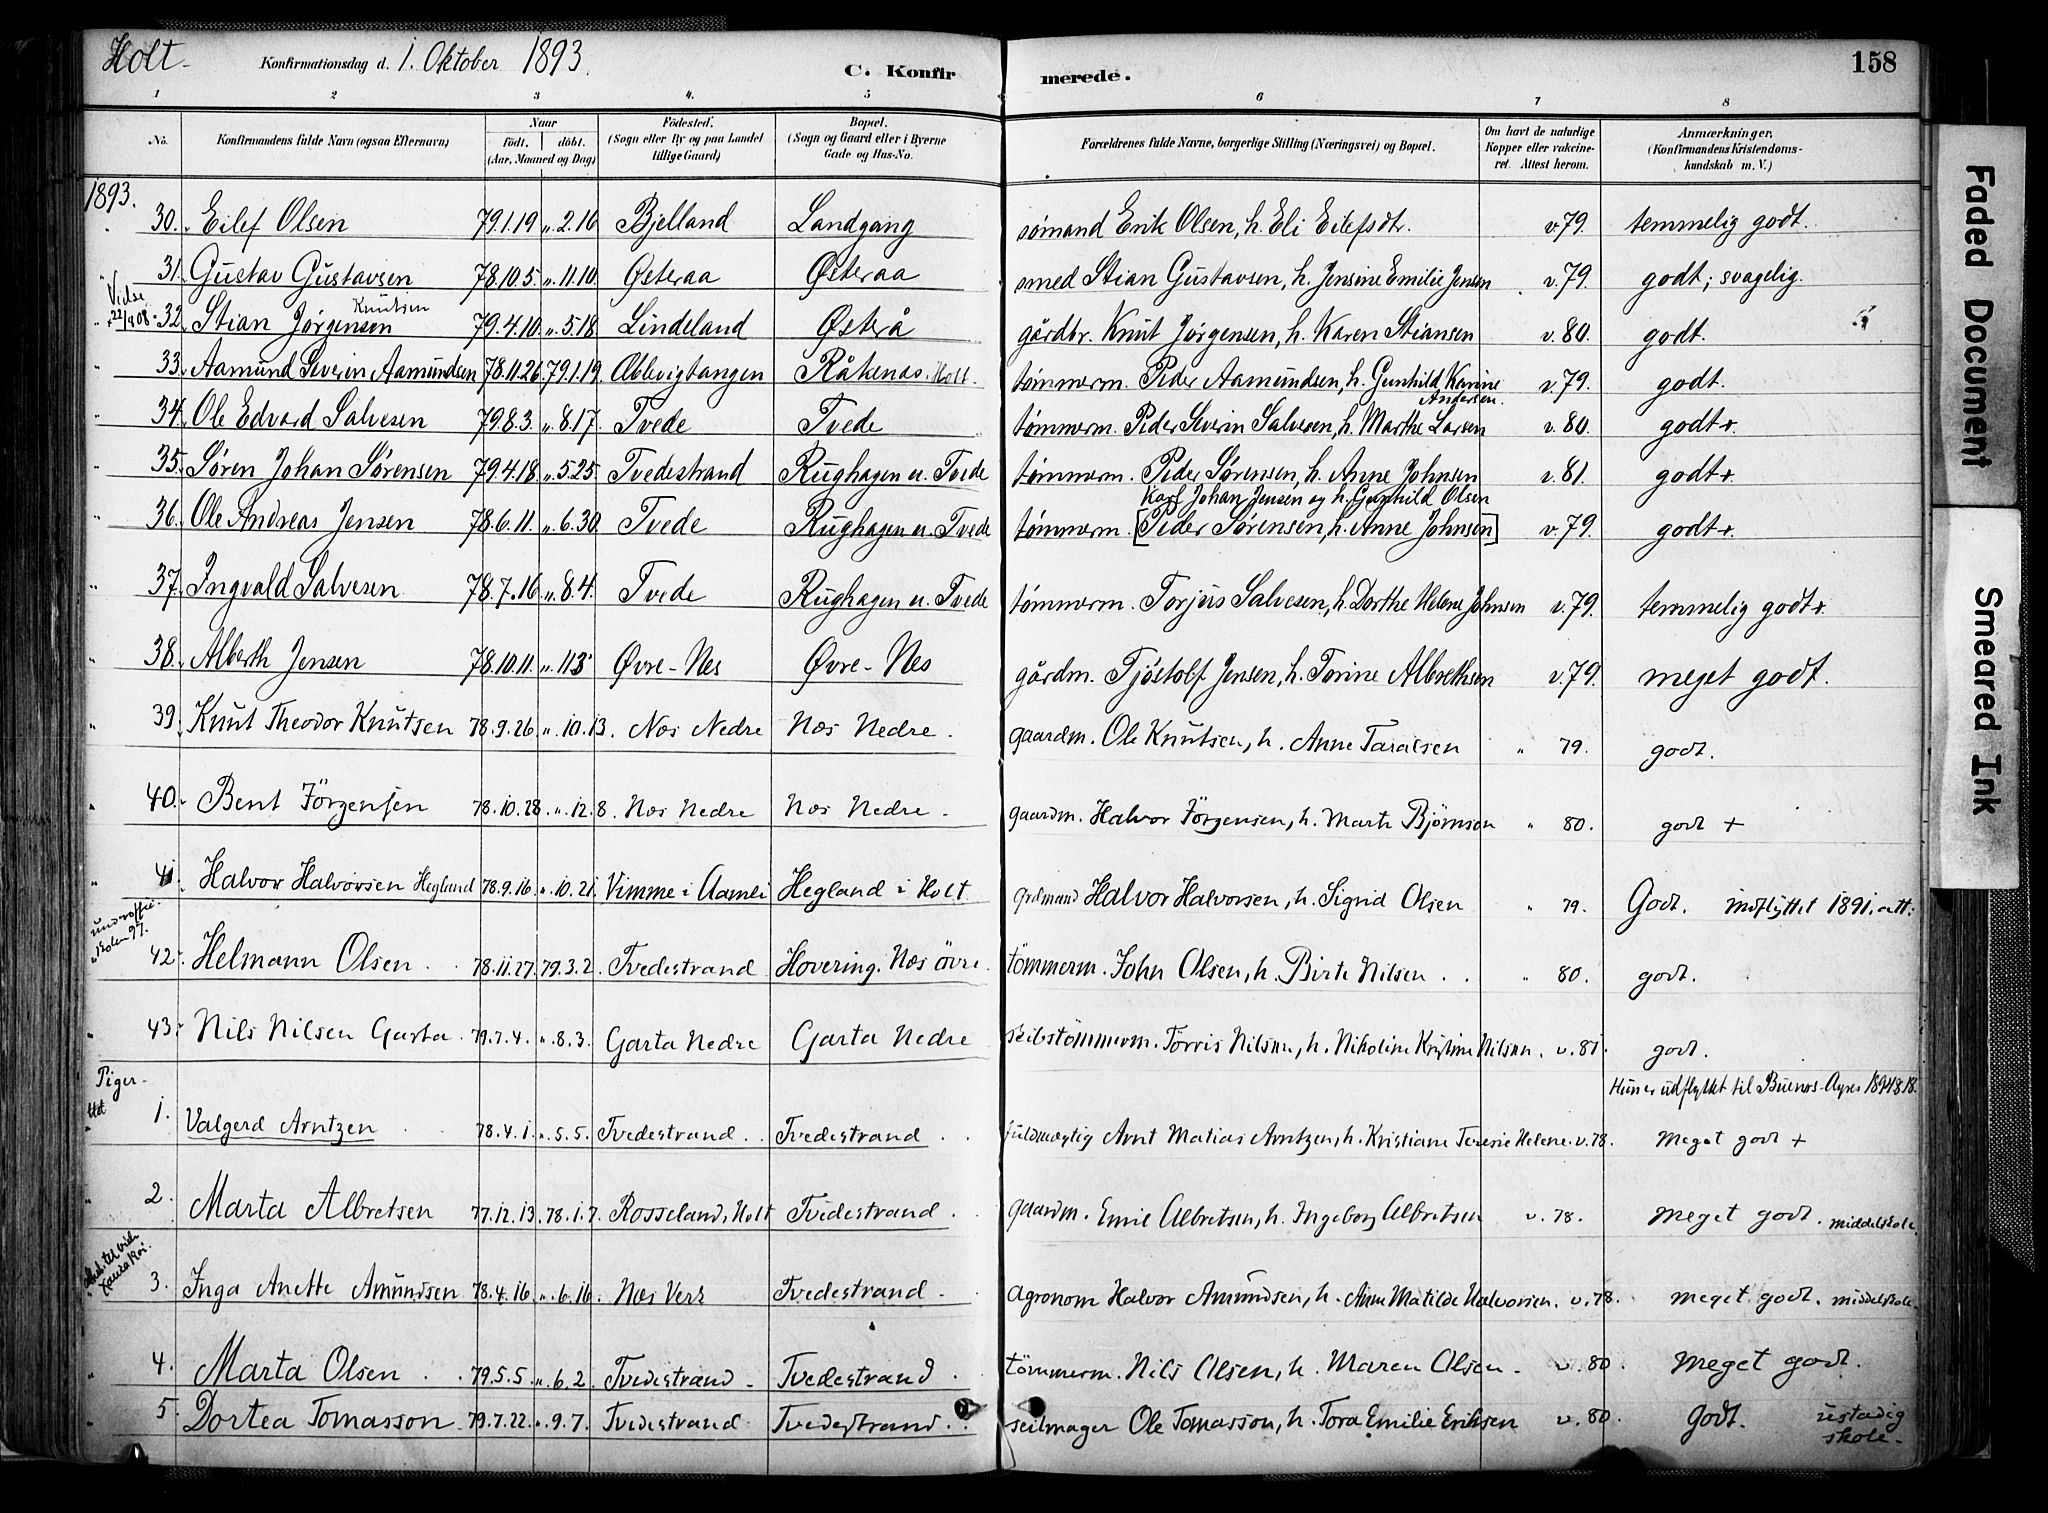 Holt. Konfirmationsdag d. 1. Oktober 1893. C. Konfirmerede. 158
1 2 3 4. 5 6 7 8
No. Konfirmandens fulde Navn (ogsaa Efternavn) Naar født. døbt. (Aar, Maaned og Dag) Fødested. (Sogn eller By og paa Landet tillige Gaard) Bopæl. (Sogn og Gaard eller i Byerne Gade og Hus-No. Forældrenes fulde Navne, borgerlige Stilling (Næringsvei) og Bopæl. Om havt de naturlige Kopper eller vakcineret. Attest herom. Anmærkninger, (Konfirmandens Kristendomskundskab m. V.)
1893.
30. Eilef Olsen 79.1.19 „ 2.16 Bjelland Landgang sømand Erik Olsen, h. Eli Eilefsdtr. v. 79. temmelig godt.
31. Gustav Gustavsen 78.10.5. „ 11.10. Østeraa Østeraa smed Stian Gustavsen, h. Jensine Emilie Jensen v. 79. godt; svagelig.
Vielse 22/4 08. 32. Stian Jørgensen Knutsen 79.4.10. „ 5.18. Lindeland Østerå gårdbr. Knut Jørgensen, h. Karen Stiansen v. 80. godt.
33. Aamund Severin Aamundsen 78.11.26. 79.1.19. Råkenæs. Holt. tømmerm. Peder Aamundsen, h. Gunhild Karine Andersen. v. 79. godt.
34. Ole Edvard Salvesen 79.8.3. „ 8.17. Tvede Tvede tømmerm. Peder Severin Salvesen, h. Marthe Larsen v. 80. godt+.
35. Søren Johan Sørensen 79.4.18. „ 5.25. Tvedestrand Rughagen u. Tvede tømmerm. Peder Sørensen, h. Anne Johnsen v. 81. godt+
Karl Johan Jensen og h. Gunhild Olsen
36. Ole Andreas Jensen 78.6.11. „ 6.30. Tvede Rughagen u. Tvede tømmerm. [Peder Sørensen, h. Anne Johnsen] v. 79. godt+.
37. Ingvald Salvesen 78.7.16 „ 8.4. Tvede Rughagen u. Tvede tømmerm. Torjus Salvesen, h. Dorthe Helene Johnsen v. 79. temmelig godt+.
38. Alberth Jensen 78.10.11. „ 11.3 Øvre-Nes Øvre-Nes gårdm. Tjöstolf Jensen, h. Torine Albrethsen v. 79. meget godt.
39. Knut Theodor Knutsen 78.9.26. „ 10.13. Næs Nedre Næs Nedre. gaardm. Ole Knutsen, h. Anne Taralsen „ 79. godt.
40. Bent Jörgensen 78.10.28. „ 12.8. Næs Nedre Næs Nedre. gaardm. Halvor Jörgensen, h. Marte Bjørnson „ 80. godt +
41. Halvor Halvorsen Hegland 78.9.16. „ 10.21. Vimme i Aamli Hegland i Holt. grdmand Halvor Halvorsen, h. Sigrid Olsen „ 79. Godt. indflyttet 1891. att:
42. Helmann Olsen 78.11.27. 79.3.2. Tvedestrand Hovering. Næs övre. tömmerm. John Olsen, h. Birte Nilsen „ 80. godt.
43. Nils Nilsen Garta. 79.7.4. „ 8.3. Garta Nedre Garta Nedre skibstömmerm. Törris Nilsen, h. Nikoline Kristine Nilsen. v. 81. godt.
Piger. Hun er udflyttet til Buenos-Ayres 1894.8.18.
1. Valgerd Arntzen 78.4.1. „ 5.5. Tvedestrand Tvedestrand fuldmægtig Arnt Matias Arntzen, h. Kristiane Teresie Helene. v. 78. Meget godt +
2. Marta Albretsen 77.12.13. 78.1.7. Rosseland, Holt Tvedestrand. gaardm. Emil Albretsen, h. Ingeborg Albretsen v. 78. Meget godt. middelskole.
3. Inga Anette Amundsen 78.4.16. „ 6.16. Næs Verk Tvedestrand. agronom Halvor Amundsen, h. Anne Matilde Halvorsen. v. 78. meget godt. middelskole.
4. Marta Olsen 79.5.5. „ 6.2. Tvedestrand. Tvedestrand. tömmerm. Nils Olsen, h. Maren Olsen. v. 80. Meget godt.
5. Dortea Tomasson 79.7.22. „ 9.7. Tvedestrand Tvedestrand. seilmager Ole Tomasson, h. Tora Emilie Eriksen v. 80. Godt. ustadig skole.
Faded Document
Smeared Ink